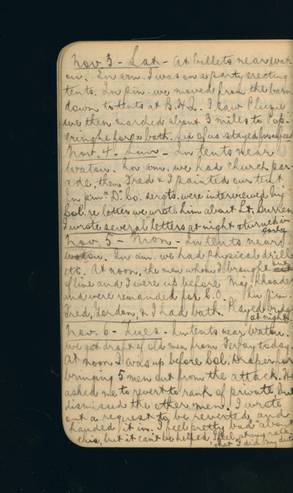 Nov 3 - Sat - At billets near
In a.m. I was on a party erecting
tents. In p.m. we moved from the barn
down to tents at B.H.Q. I saw
we then marched about 3 miles to Pop-
eringhe for a bath. six of us stayed for supper
Nov. 4. Sun - In tents near
Watou. In a.m. we had Church par-
ade, then Fred & I
in p.m. D. Co. sergts. were interviewed by
Col. re letter we wrote him about Lt.
I wrote several letters at night & turned in early
Nov 5 - Mon - In tents near
Watou. In a.m. we had physical drill
etc. At noon, the men whom I brought out
of line and I were up before Maj.
and were remanded for C.O. In p.m.
Fred, Gordon, & I had bath. Played
at night
Nov. 6 - Tues - In tents near Watou.
We got draft of old men from today
At noon I was up before Col. for
bringing 5 men out from the attack. He
asked me to revert to rank of private, but
dismissed the other men. I wrote
out a request to be reverted, and
handed it in. I feel pretty bad about
this, but it can't be helped. I feel
that I did my duty